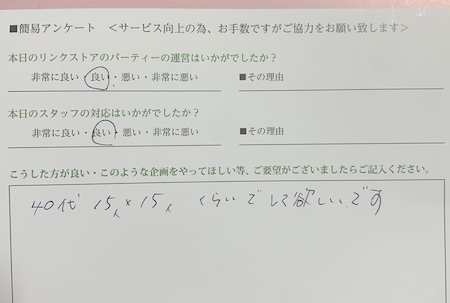 ■簡易アンケート ＜サービス向上の為、お手数ですがご協力をお願い致します＞
本日のリンクストアのパーティーの運営はいかがでしたか？
非常に良い・良い・悪い・非常に悪い ■その理由
本日のスタッフの対応はいかがでしたか？
非常に良い・良い・悪い・非常に悪い ■その理由
こうした方が良い・このような企画をやってほしい等、ご要望がございましたらご記入ください。
40代 15人×15人 くらいでして欲しいです